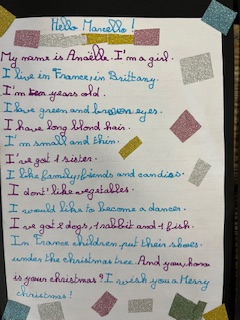 Hello Marcello !
My name is Anaëlle. I'm a girl.
I live in France, in Brittany.
I'm ten years old.
I have green and brown eyes.
I have long blond hair.
I'm small and thin.
I've got 1 sister.
I like family, friends and candies.
I dont' like vegetables.
I would like to become a dancer.
I've got 2 dogs, 1 rabbit and 1 fish.
In France children, put their shoes
under the christmas tree. And you, how
is your christmas ? I wish you a Merry
christmas !